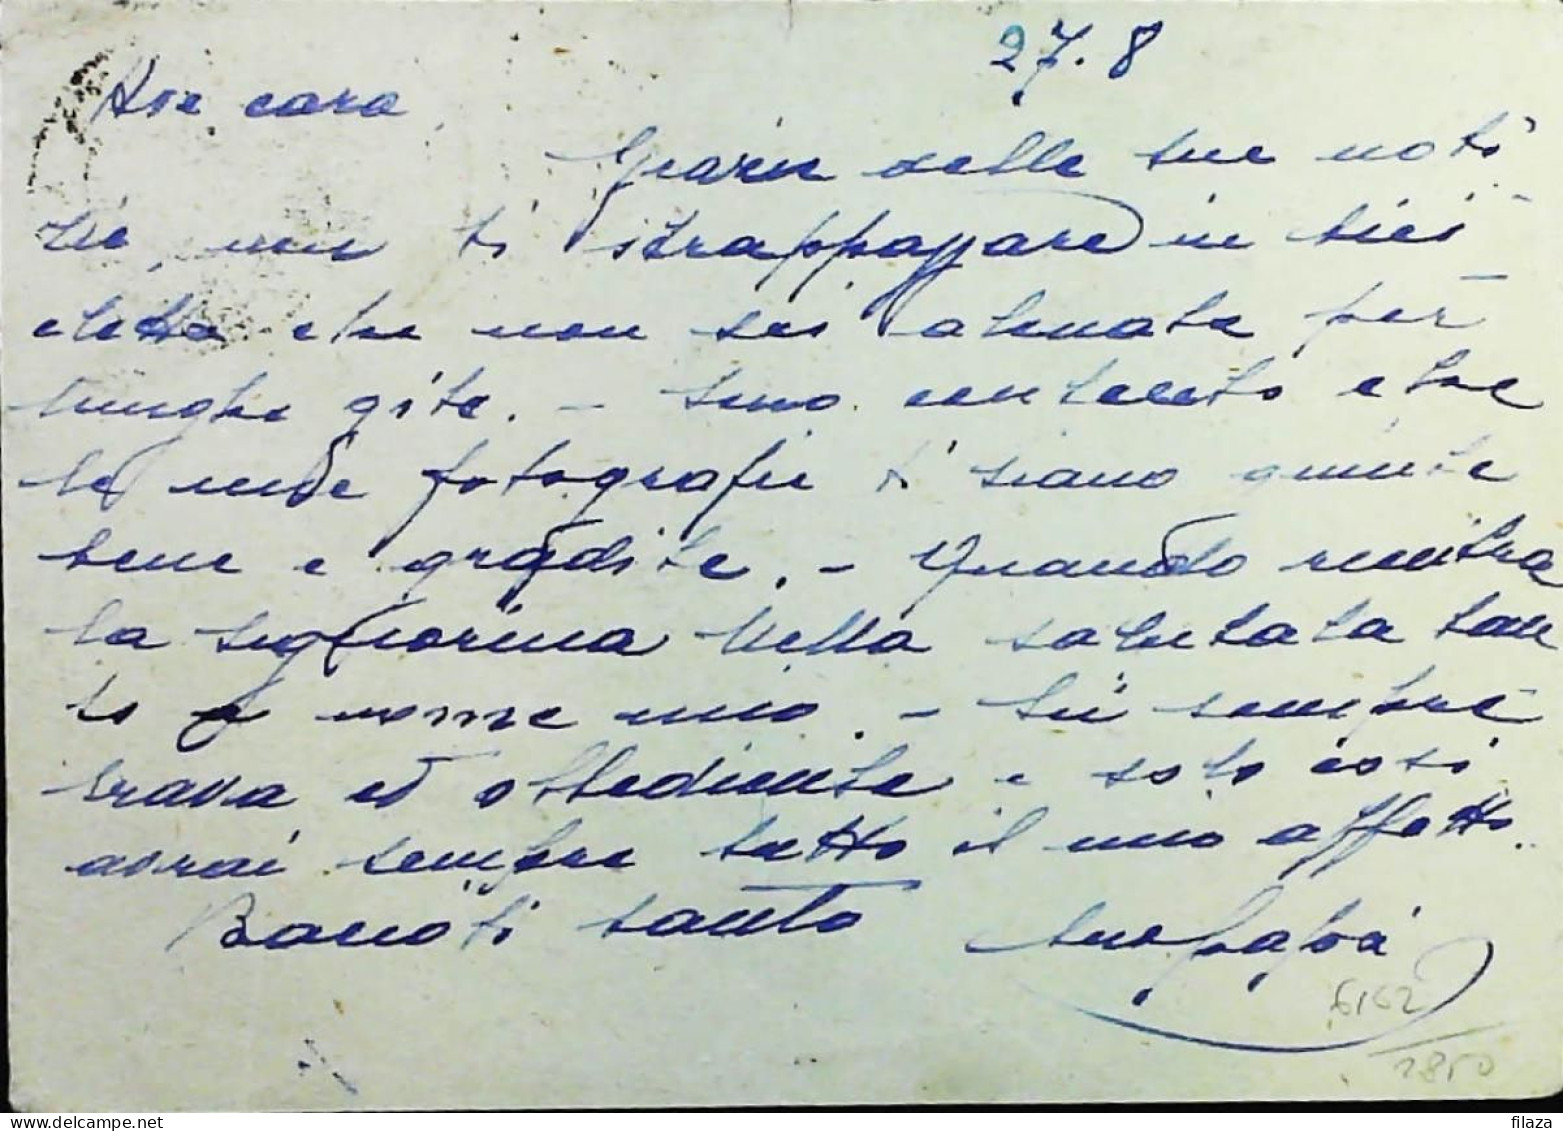 27.8
cara
delle tue noti
zie, non ti strappazzare in bici
cletta che non sei allenata per
lunghe gite. - Sono contento che
le mie fotografie ti siano giunte
bene e gradite. - Quando rientra
la signorina Nella salutala tan
to a nome mio. - Sii sempre
brava ed obbediente e solo così
avrai sempre tutto il mio affetto.
Bacioti tanto tuo papà
6162
1850
filaza